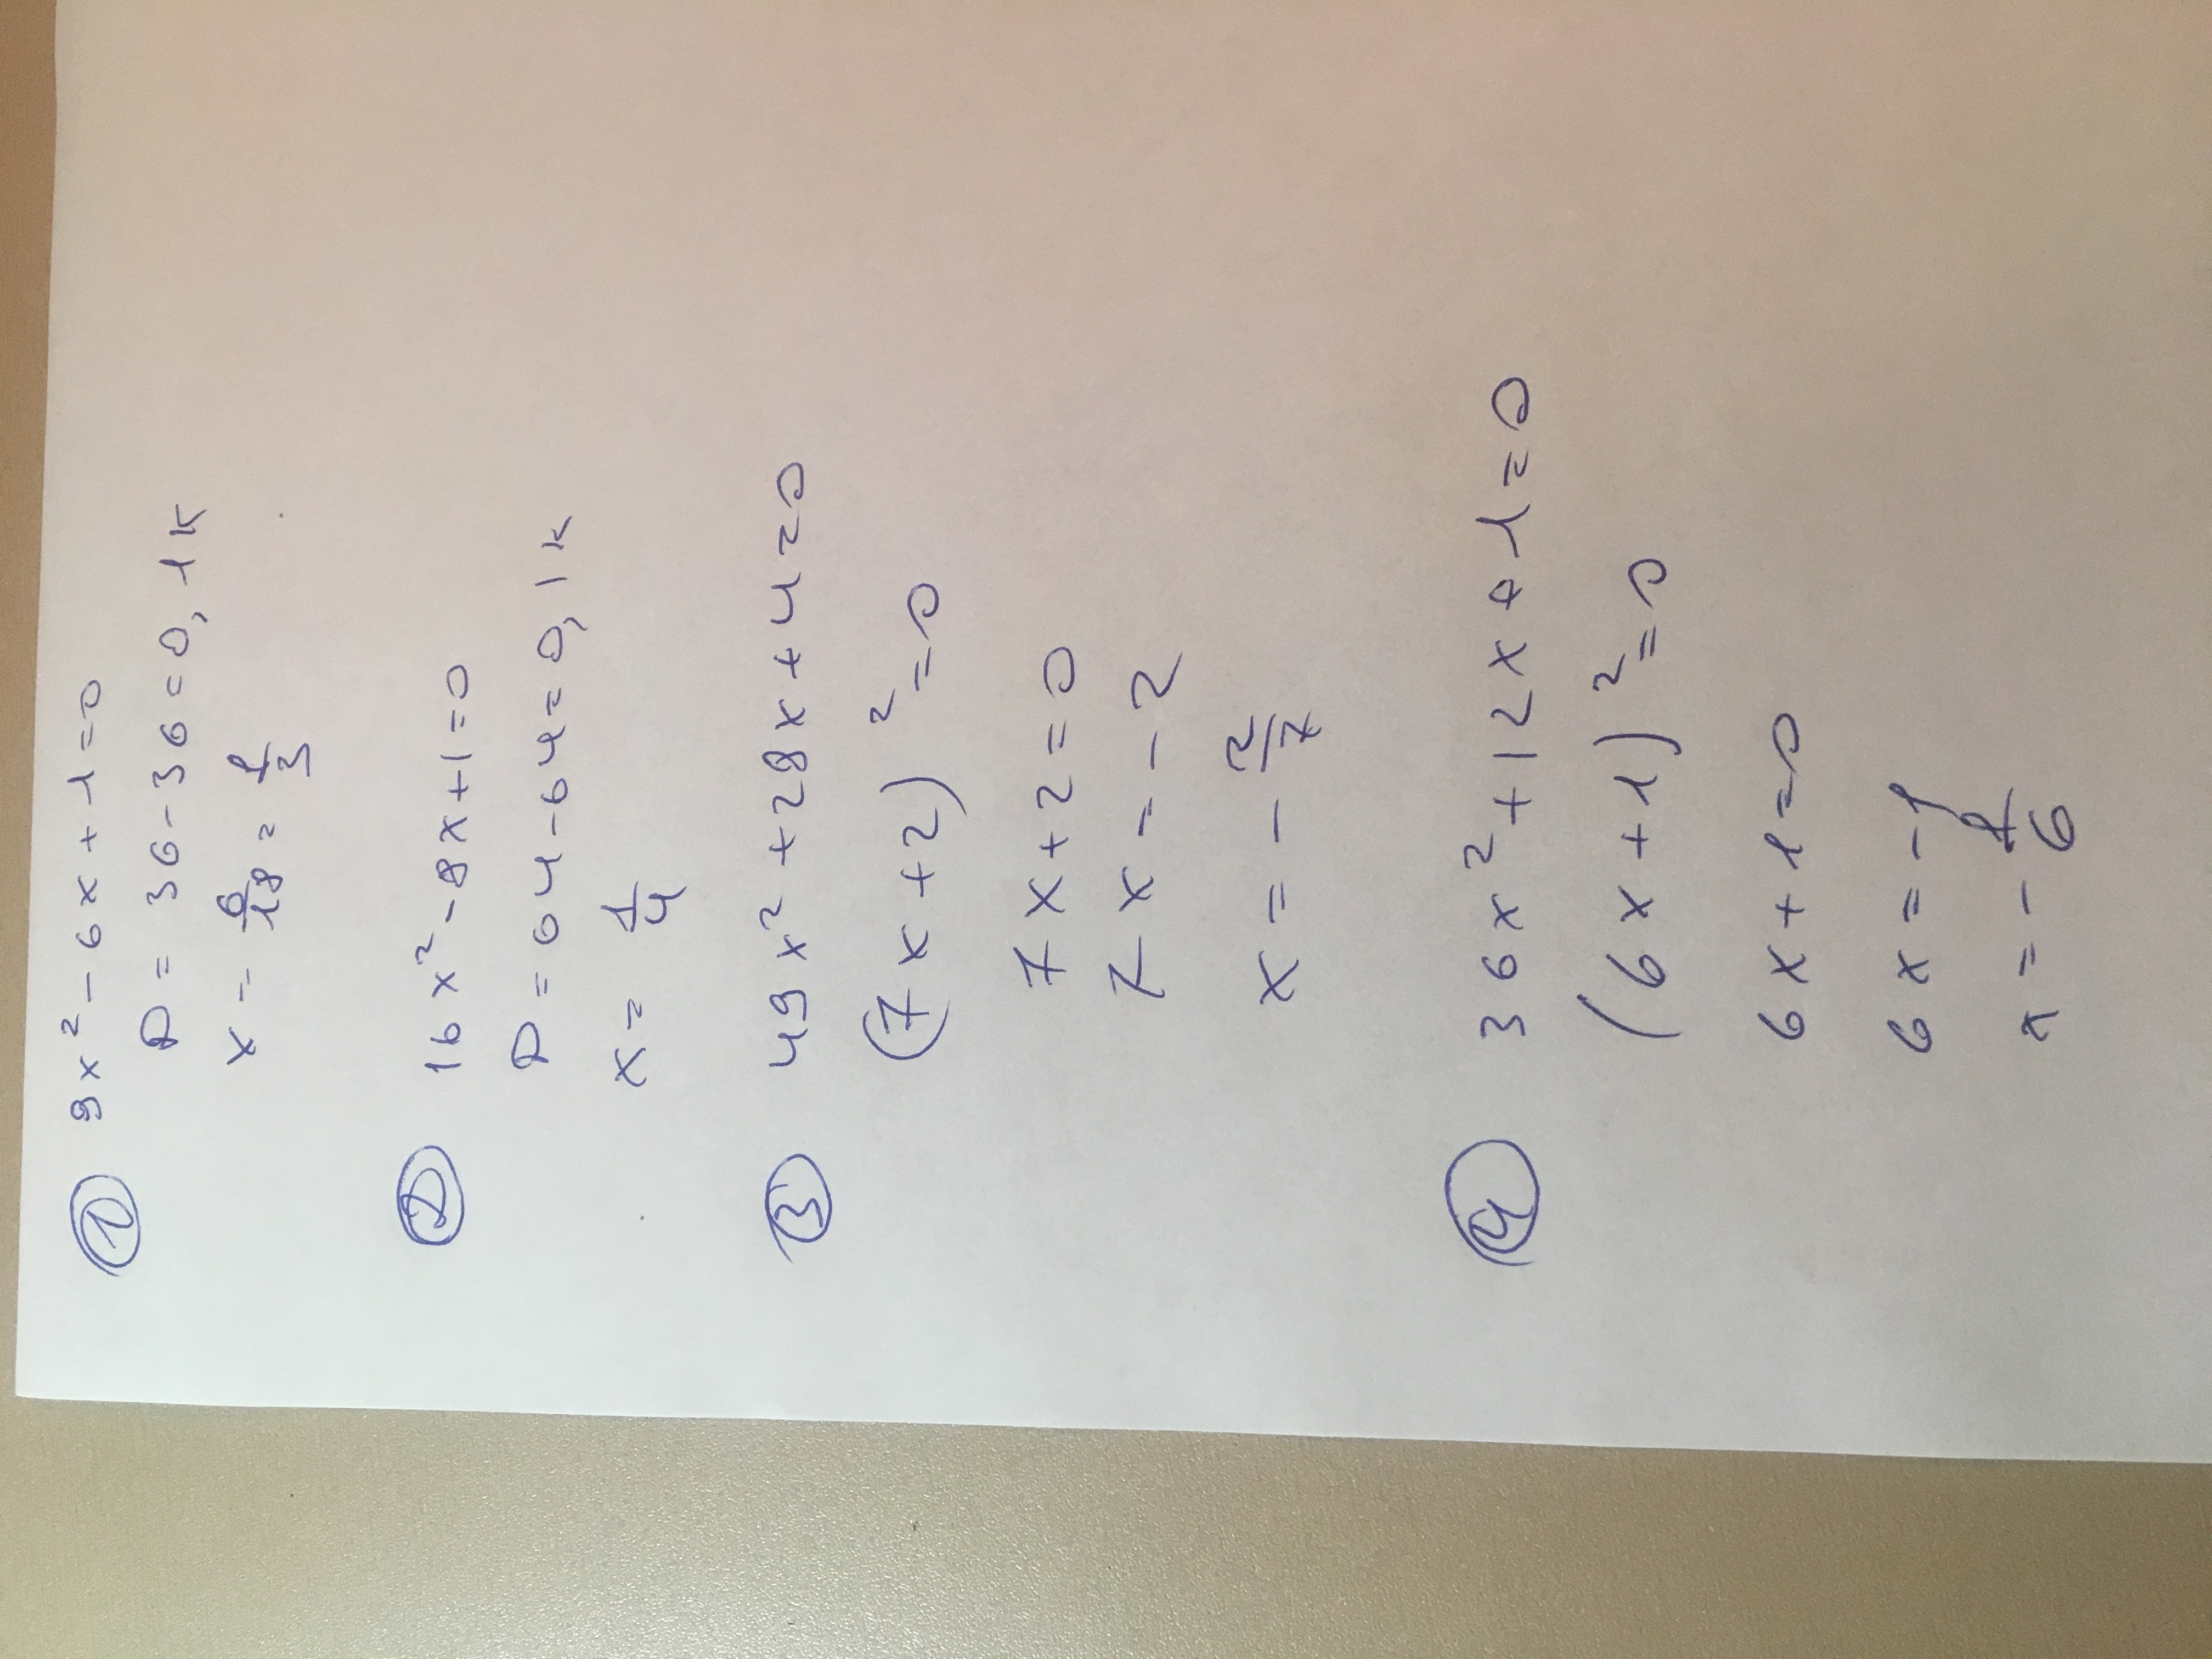 ① 9x² - 6x + 1 = 0
D = 36 - 36 = 0, 1к
x = 6/18 = 1/3
② 16x² - 8x + 1 = 0
D = 64 - 64 = 0, 1к
x = 1/4
③ 49x² + 28x + 4 = 0
(7x + 2)² = 0
7x + 2 = 0
7x = -2
x = - 2/7
④ 36x² + 12x + 1 = 0
(6x + 1)² = 0
6x + 1 = 0
6x = -1
x = - 1/6